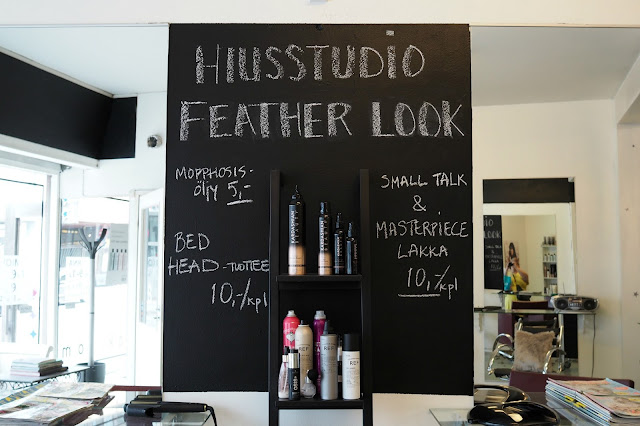 HIUSSTUDIO
FEATHER LOOK
MOPPHOSIS-
ÖLJY 5,-
BED
HEAD-TUOTTEE
10,-/kpl
SMALL TALK
&
MASTERPIECE
LAKKA
10,-/kpl
REF